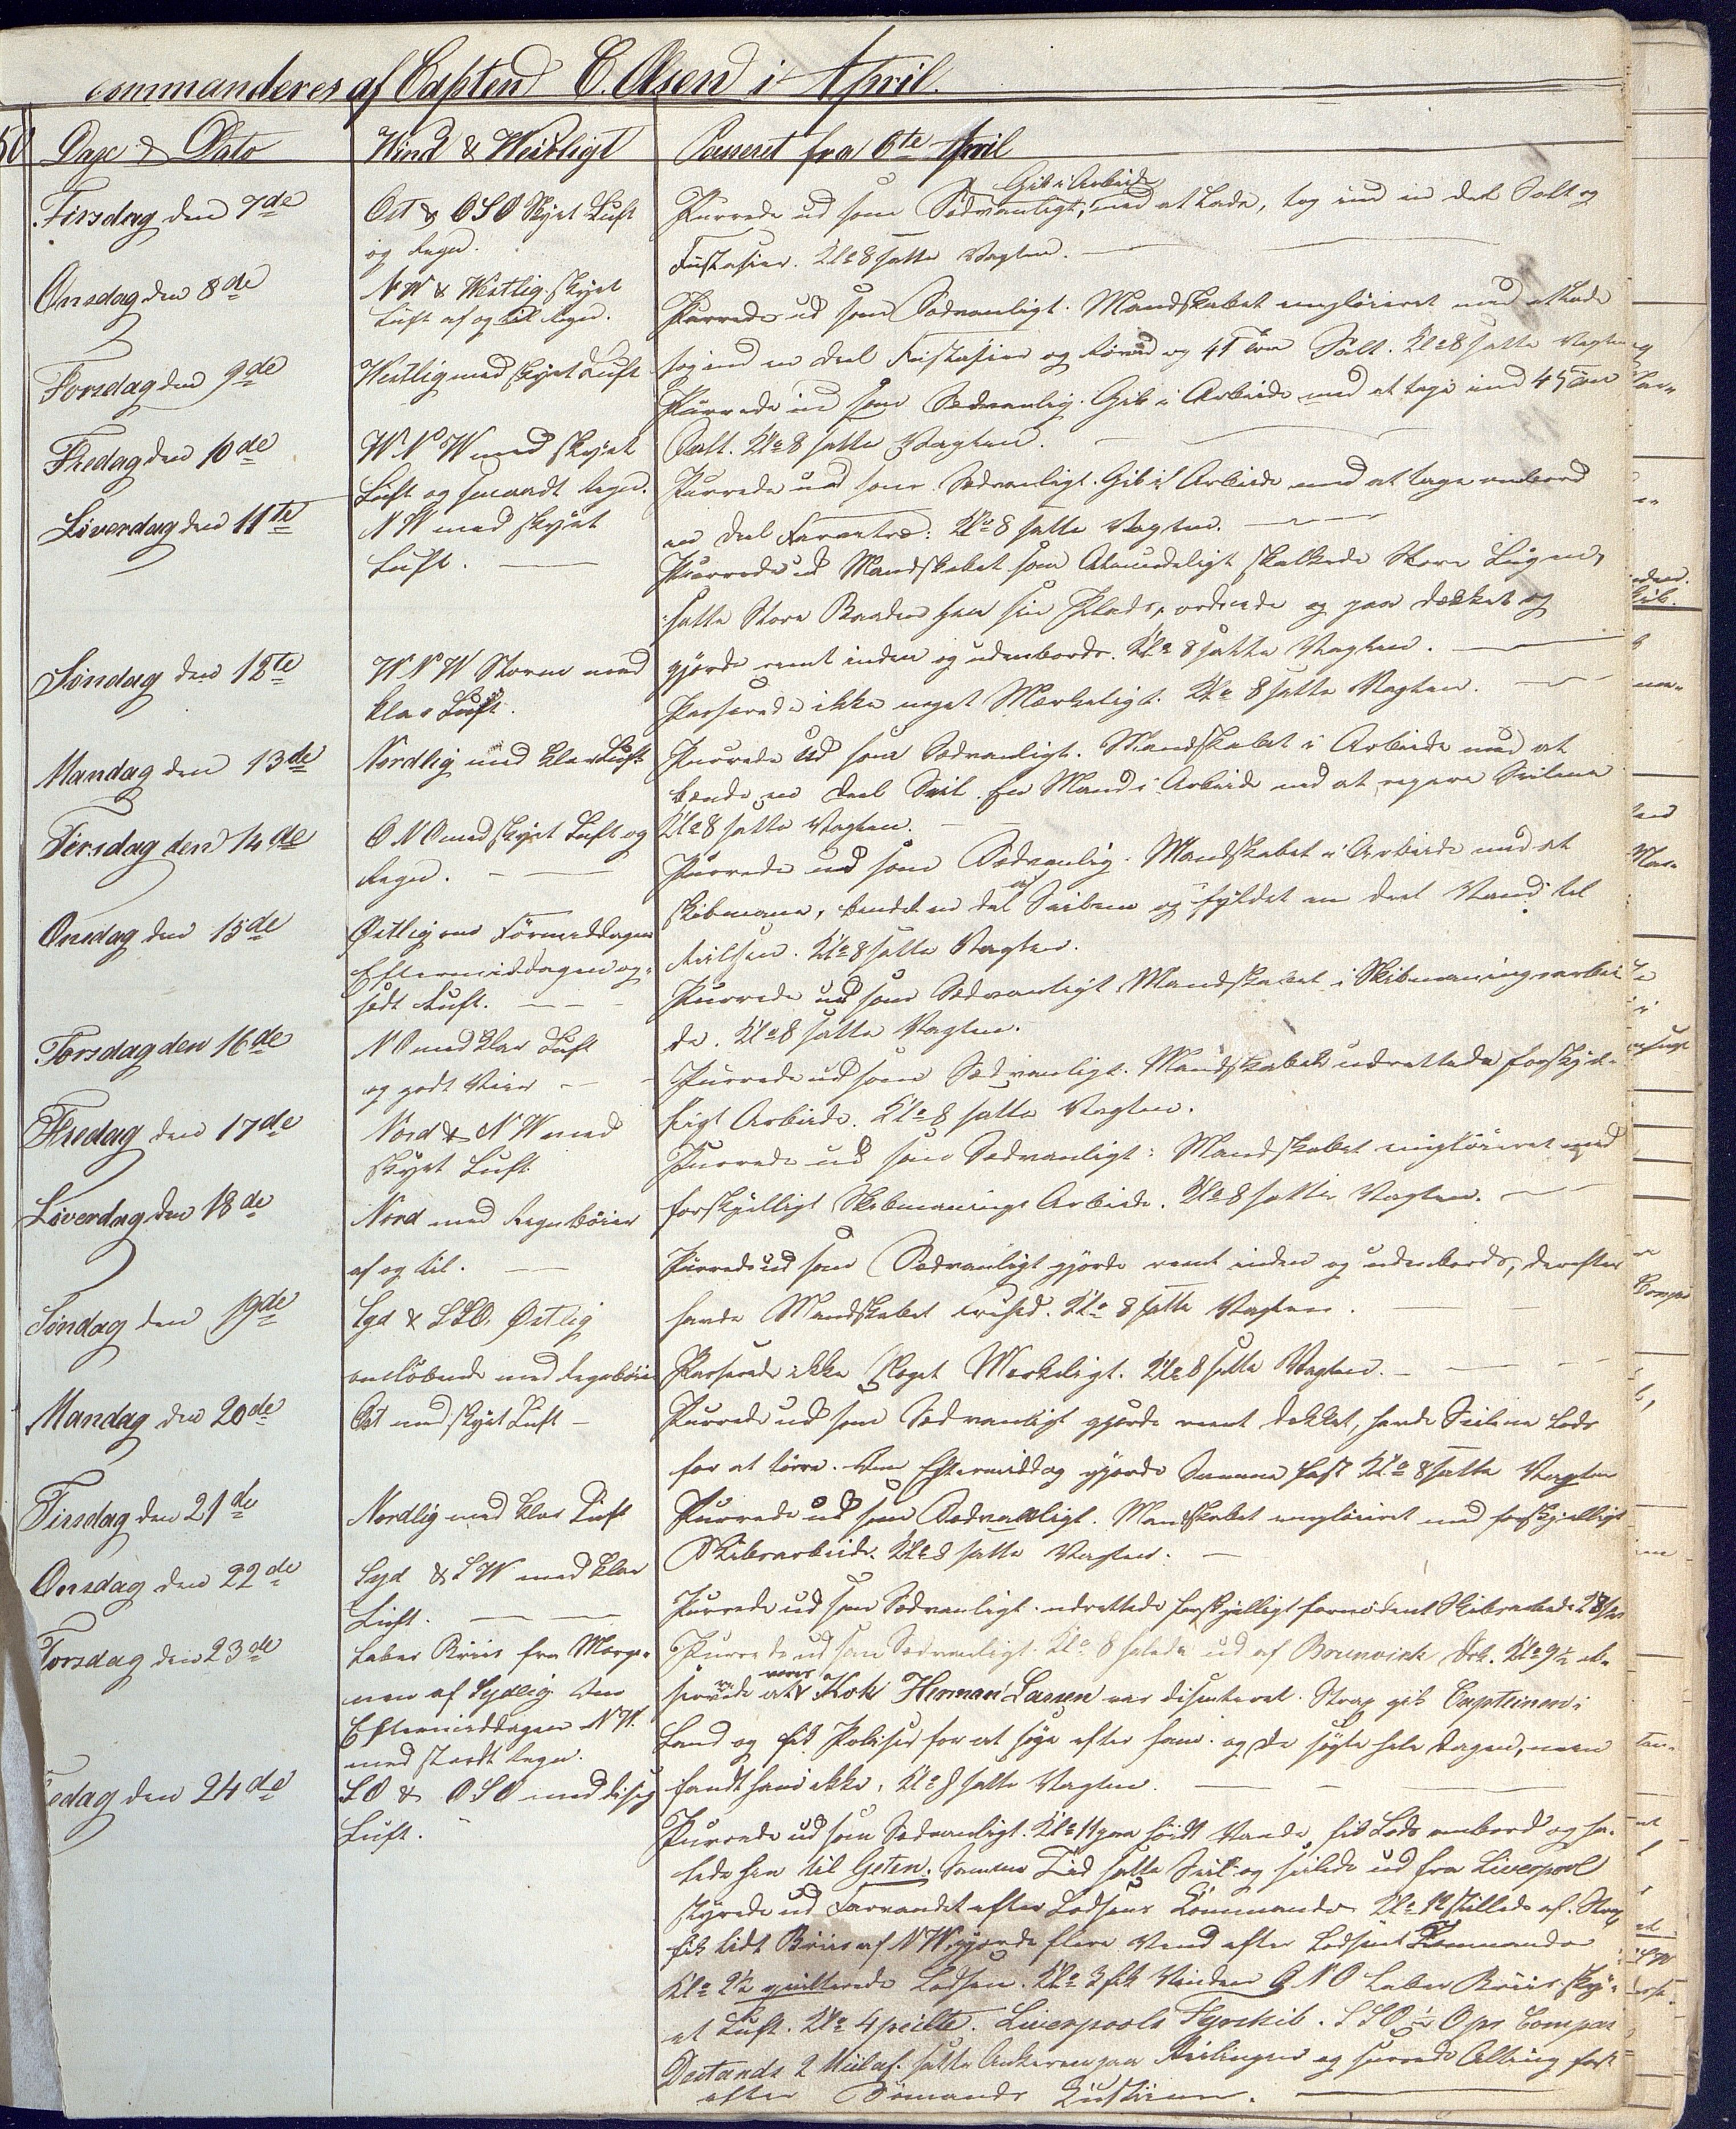 commanderes af Capten C. Olsen i April.
Dage & Dato
Wind & Weirligt
Passeret fra 6te April
Tirsdag den 7de
Ost & OSO Skyet Luft
og Regn.
Purrede ud som Sædvanligt, Gik i Arbeide med at Lade, tog ind en deel Salt og
Fustasier. Klo 8 satte Vagten.
Onsdag den 8de
NW & Westlig skyet
Luft af og til Regn.
Purrede ud som Sædvanligt. Mandskabet med at Lade
tog ind en deel Fustasier og og 41 Ton Salt. Klo 8 satte Vagten
Torsdag den 9de
Westlig med skyet Luft
Purrede ud som Sædvanlig. Gik i Arbeide med at tage ind 45 Ton
Salt. Klo 8 satte Vagten.
Fredag den 10de
WNW med skyet
Luft og smaadt Regn.
Purrede ud som Sædvanligt. Gik i Arbeide med at tage ombord
en deel Klo 8 satte Vagten.
Löverdag den 11te
NW med skyet
Luft.
Purrede ud Mandskabet som Almindeligt skalkede Store Lugen,
satte Store Baaden paa sin Plads, ordnede og paa dækket og
gjorde reent inden og udenbords. Klo 8 satte Vagten.
Söndag den 12te
WNW Storm med
klar Luft.
Passerede ikke noget Mærkeligt. Klo 8 satte Vagten.
Mandag den 13de
Nordlig med klar Luft
Purrede ud som Sædvanligt. Mandskabet i Arbeide med at
bænde en deel Seil. En Mand i Arbeide med at reparere Seilene
Klo 8 satte Vagten.
Tirsdag den 14de
ONO med skyet Luft og
Regn.
Purrede ud som Sædvanlig. Mandskabet i Arbeide med at
skibmane, bendet en del af Seilene og fyldet en deel Vand til
Reisen. Klo 8 satte Vagten.
Onsdag den 15de
Østlig om Formiddagen
Eftermiddagen og-
saa Luft.
Purrede ud som Sædvanligt Mandskabet i Skibmaningsarbei
de. Klo 8 satte Vagten.
Torsdag den 16de
NO med klar Luft
og godt Veir
Purrede ud som Sædvanligt. Mandskabet udrettede forskjel-
ligt Arbeide. Klo 8 satte Vagten.
Fredag den 17de
Nord & NW med
skyet Luft
Purrede ud som Sædvanligt: Mandskabet med
forskjelligt Skibmanings Arbeide. Klo 8 satte Vagten.
Löverdag den 18de
Nord med Regnböier
af og til.
Purrede ud som Sædvanligt gjorde reent inden og udenbords, derefter
havde Mandskabet frihed. Klo 8 satte Vagten.
Söndag den 19de
Syd & SSO. Østlig
omløbende med Regnböier
Passerede ikke Noget Merkeligt. Klo 8 satte Vagten.
Mandag den 20de
Ost med skyet Luft
Purrede ud som Sædvanligt gjorde reent dækket, havde Seilene Løs
for at törre. Om Eftermiddag gjorde Samme fast Klo 8 satte Vagten
Tirsdag den 21de
Nordlig med klar Luft
Purrede ud som Sædvanligt. Mandskabet med forskjelligt
Skibsarbeide. Klo 8 satte Vagten.
Onsdag den 22de
Syd & SW med klar
Luft.
Purrede ud som Sædvanligt. udrettede forskjelligt fornödent Skibsarbeide
Torsdag den 23de
Laber Kuling fra Morge-
nen af Sydlig Om
Eftermiddagen NW.
med stærkt Regn.
Purrede ud som Sædvanligt. Klo 8 halede ud af Brunsvick Dok. Klo 9½ ob-
serverede at vores Kok Herman Larsen var diserteret. Strax gik Capteinen i
Land og fik Polisier for at søge efter ham. og de søgte hele Dagen, men
fandt ham ikke. Klo 8 satte Vagten.
edag den 24de
SO & OSO med disig
Luft.
Purrede ud som Sædvanligt. Klo 11 paa höidt Vande fik Lods ombord og ha-
lede hen til Geten. Samme Tid satte Seil og seilede ud fra Liverpool
styrede ud Farvandet efter Lodsens Kommando Klo 12 stillede af. Strax
fik lidt Bris af NW. gjorde flere Vend efter Lodsens Kommando
Klo 2½ quitterede Lodsen. Klo 3 fik Vinden ONO Laber Bris sky-
et Luft. Klo 4 peilte Liverpools Fyrskib. SSO ½ O pr Compas
Destands 2 Miil af. satte Ankerne paa og surrede Alting fast
efter Sömands